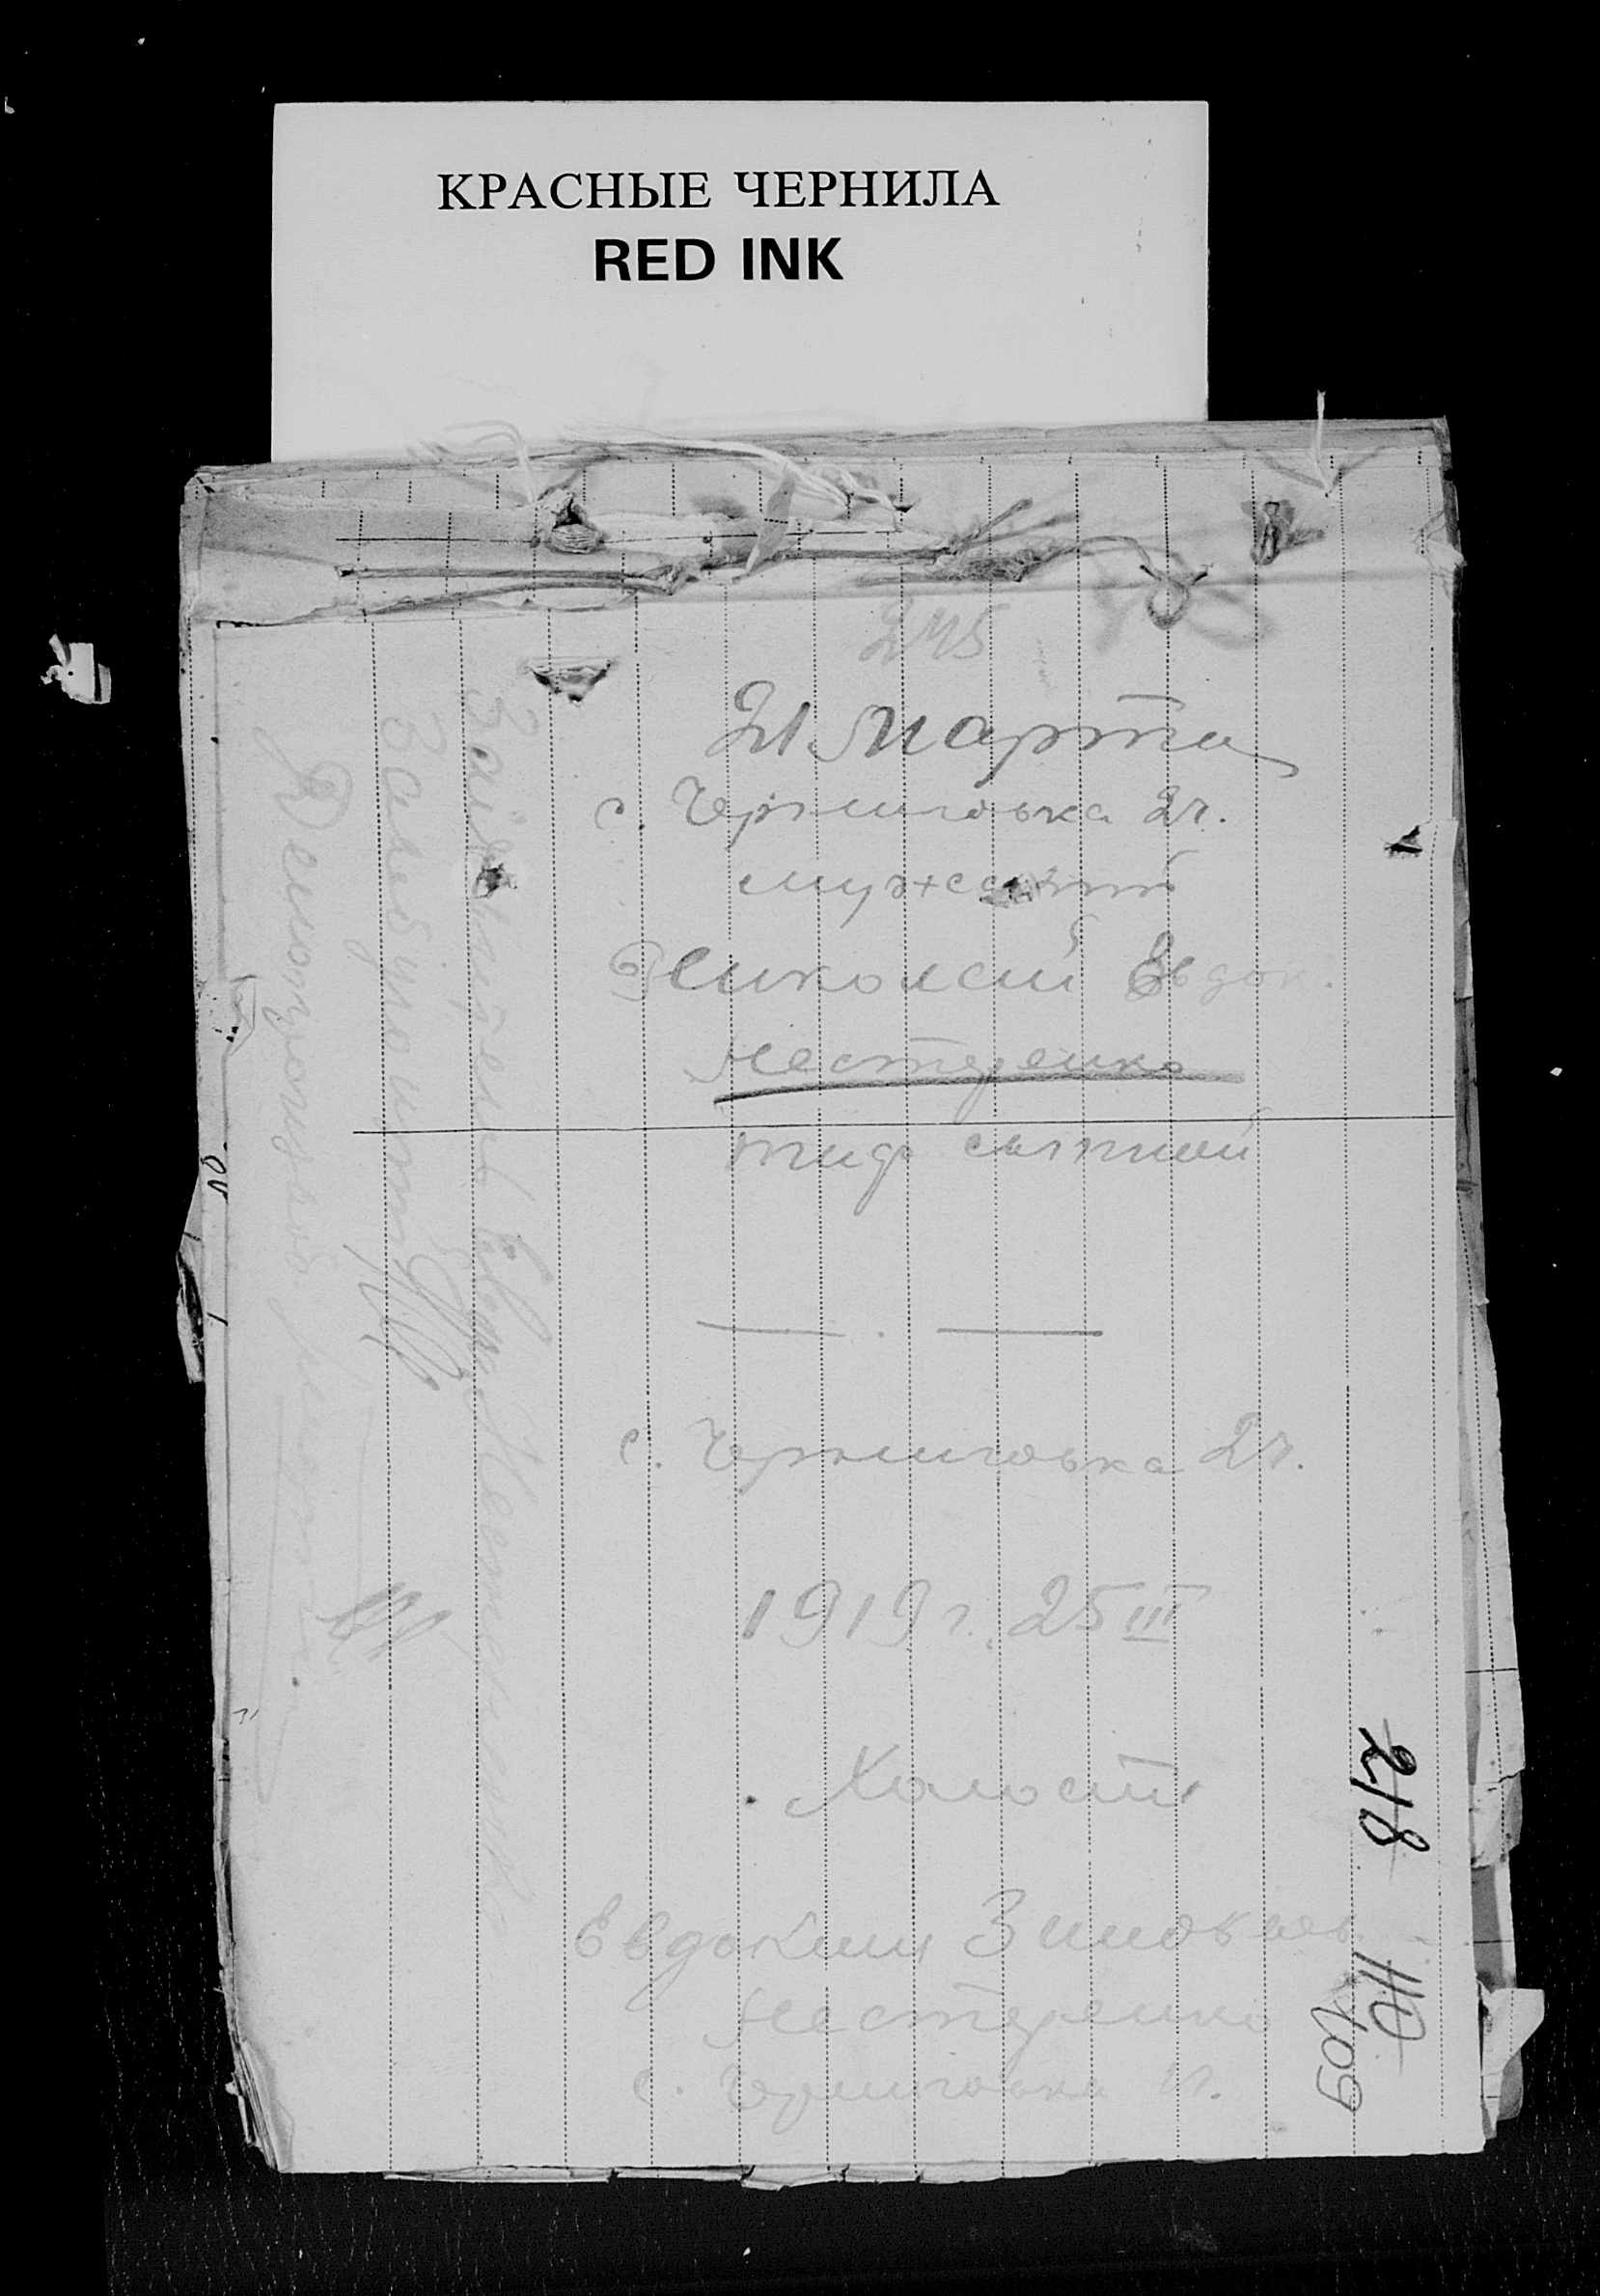 КРАСНЫЕ ЧЕРНИЛА
RED INK
245
21 марта
с. Черниговка 2ч.
мужской
Николай Евдок.
Нестеренко
тиф сыпной
с. Черниговка 2ч.
1919 г. 25 III
Холост
Евдоким Зиновьев.
Нестеренко
с. Черниговка
Заявитель Евдок. Нестеренко
218
110
109